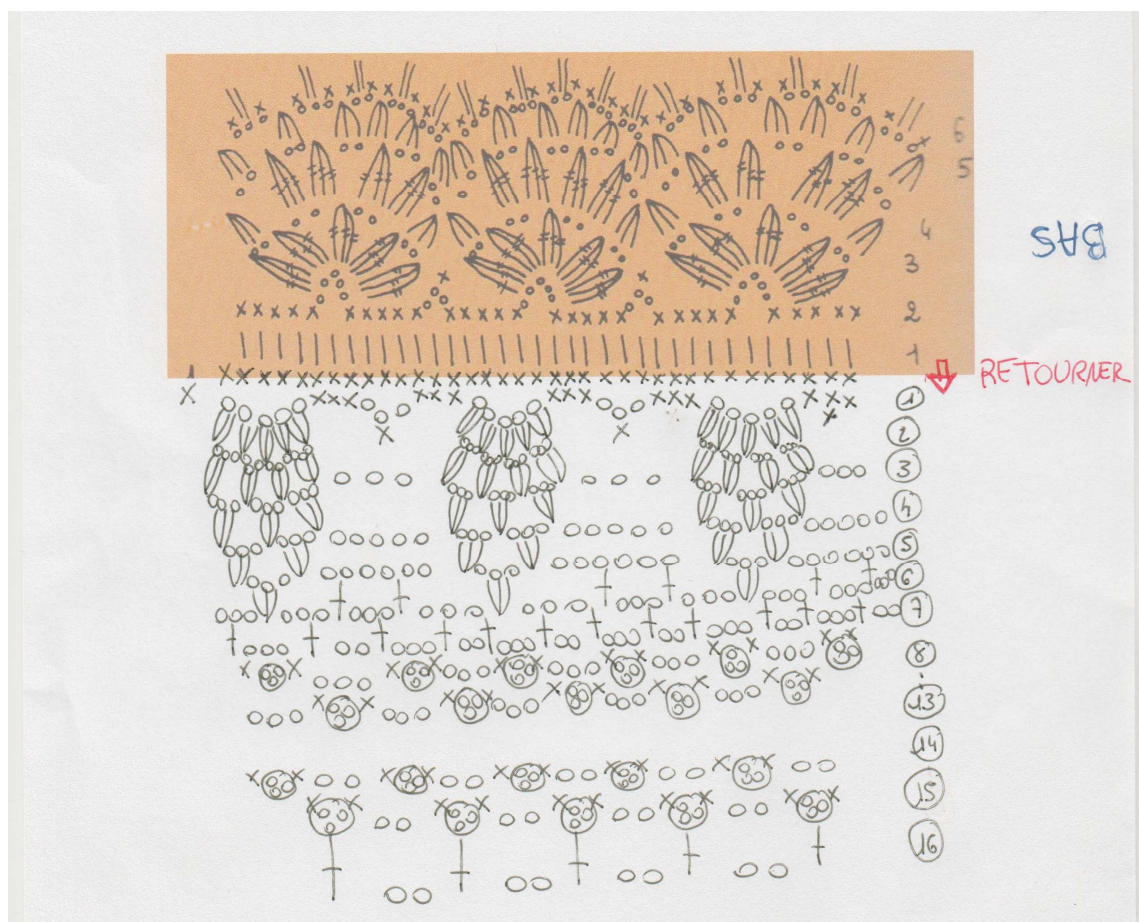 6
5
4
BAS
3
2
1
RETOURNER
1
2
3
4
5
6
7
8
13
14
15
16